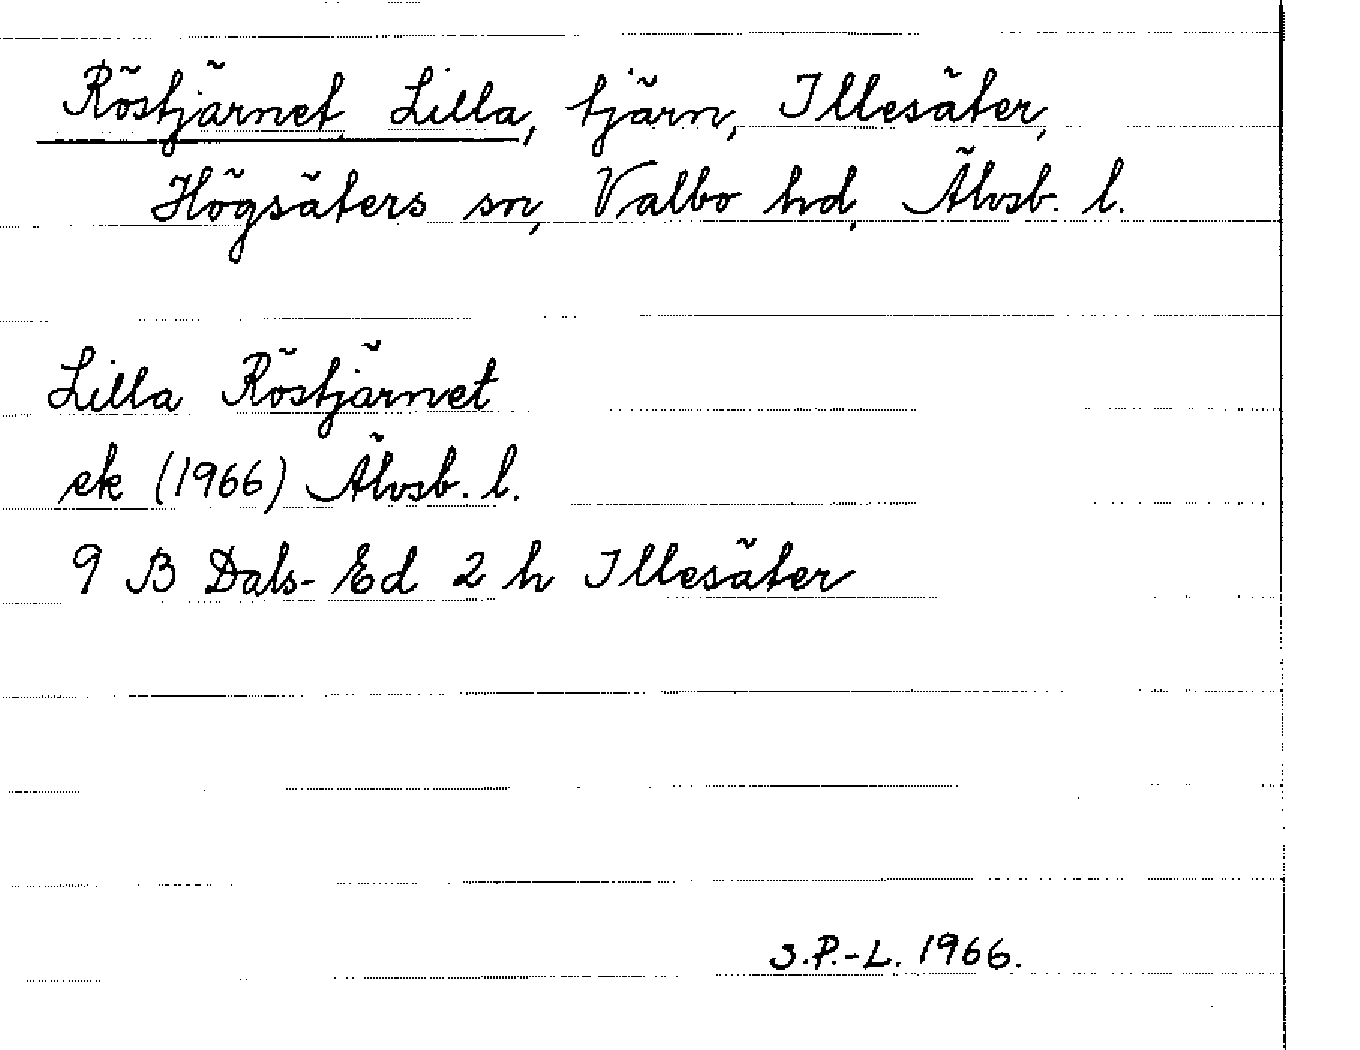 Röstjärnet, Lilla, tjärn, Illesäter,
Högsäters sn, Valbo hd, Älvsb. l.
Lilla Röstjärnet
ek (1966) Älvsb. l.
9 B Dals-Ed 2 h Illesäter
S.P.-L. 1966.